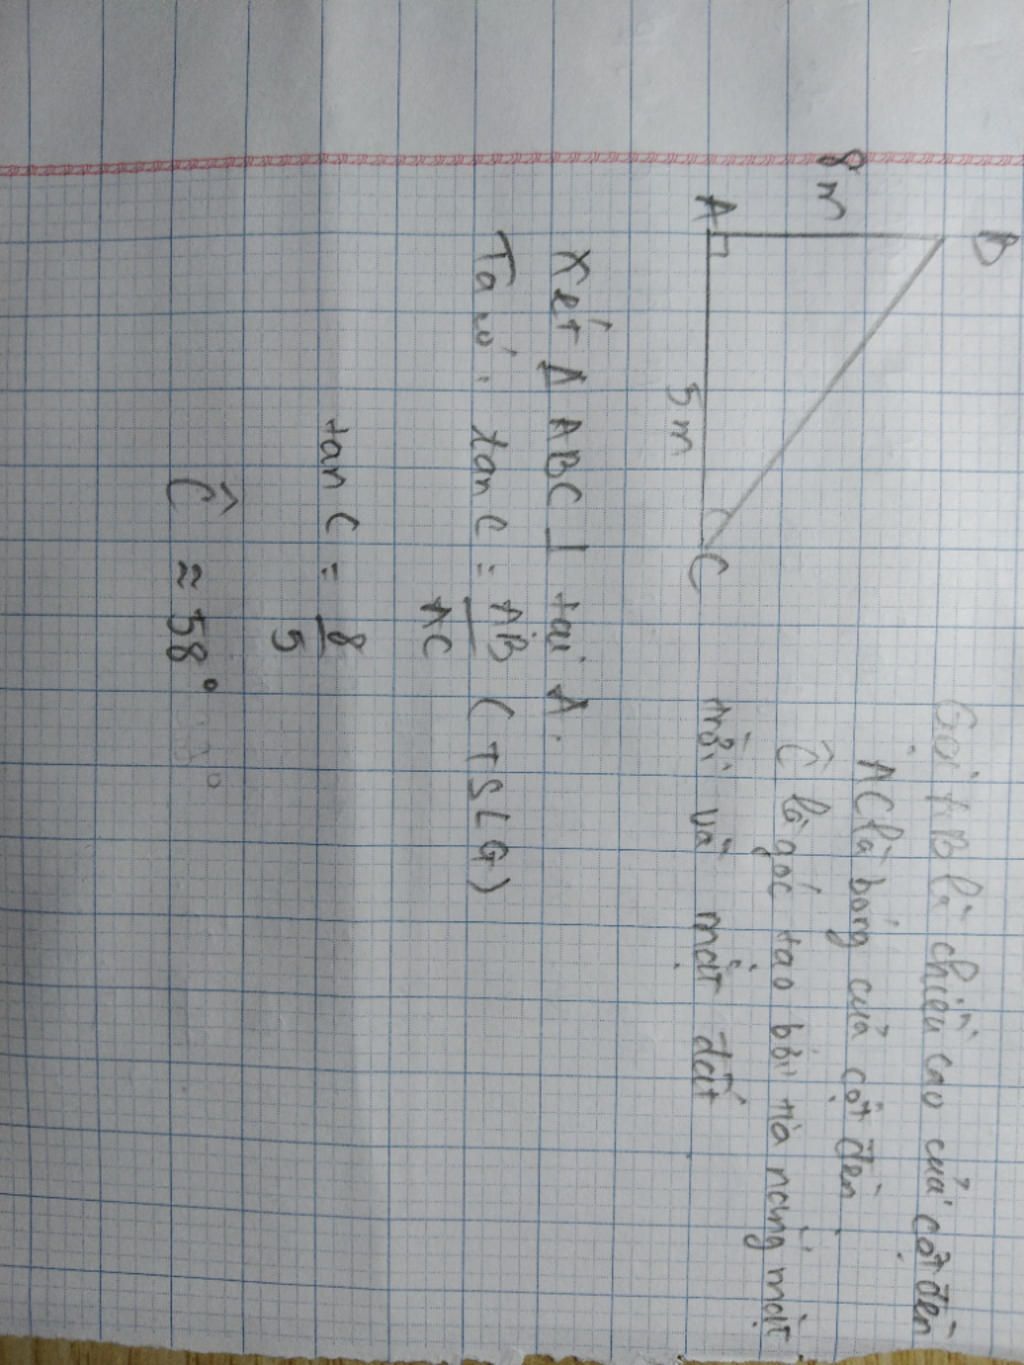 B
8m
A
5m
C
Gọi AB là chiều cao của cột đèn
AC là bóng của cột đèn
Ĉ là góc tạo bởi tia nắng mặt
trời và mặt đất
Xét Δ ABC ⊥ tại A.
Ta có: tan C = AB/AC (TSLG)
tan C = 8/5
Ĉ ≈ 58°